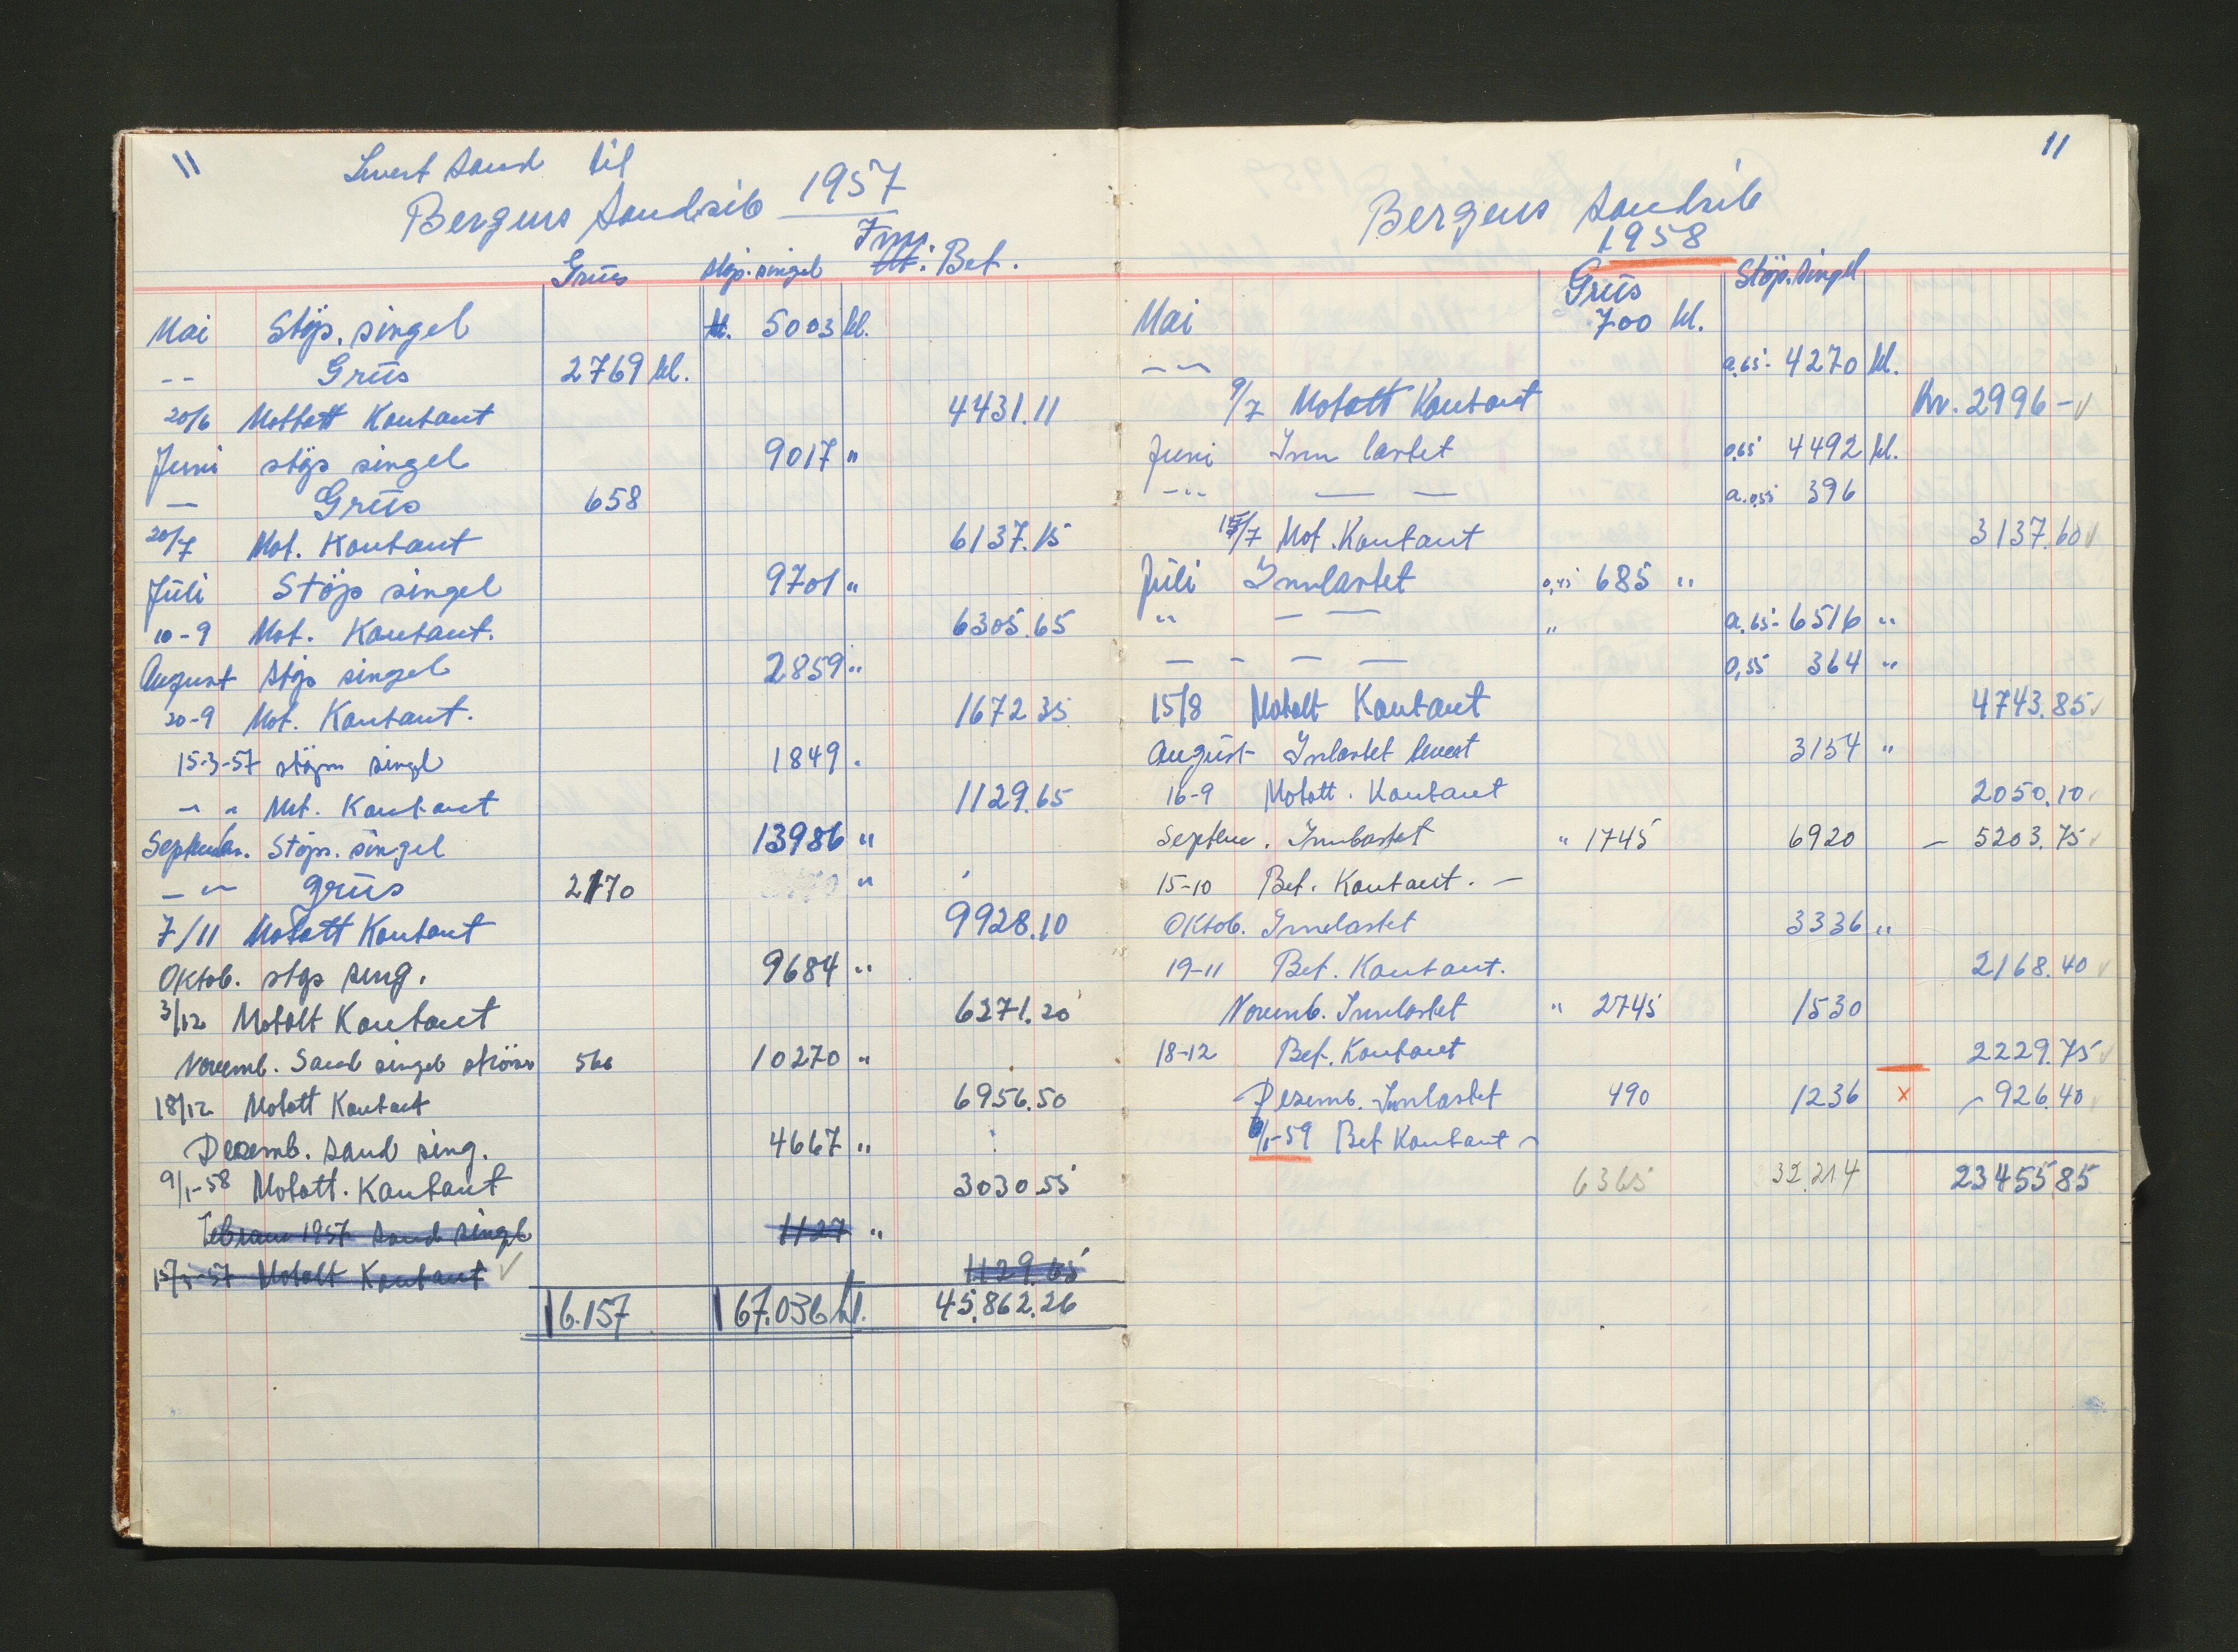 11
Levert Sand til
Bergens Sandsib 1957
Inn.
Grüs Støp. singel Bet.
Mai Støp. singel 5003 hl.
-- Grüs 2769 hl.
20/6 Mottatt Kontant 4431.11
Juni støp singel 9017 "
— Grüs 658
20/7 Mot. Kontant 6137.15
Jüli Støp singel 9701 "
10-9 Mot. Kontant. 6305.65
August støp singel 2859 "
20-9 Mot. Kontant. 1672 35
15-3-57 støp singl 1849 .
" " Mot. Kontant 1129.65
Septemb. Støp. singel 13986 "
— " — grüs 2170 "
7/11 Motatt Kontant 9928.10
Oktob. støp sing. 9684 "
3/12 Motatt Kontant 6271.20
Novemb. Sand singel 566 10270 "
18/12 Motatt Kontant 6956.50
Dezemb. Sand sing. 4667 "
9/1-58 Motatt. Kontant 3030 55
Februar 1957 sand singel 1127 "
15/3-57 Motatt Kontant ✓ 1129.65
6.157 67.036 hl. 45.862.26
11
Bergens Sandsib
1958
Grüs Støp. Singel
Mai 700 hl.
— " — a.65- 4270 hl.
9/7 Motatt Kontant Kr. 2996 - ✓
Juni Inn lastet 0,65 4492 hl.
- " - — — a.0,55 396
15/7 Mot. Kontant 3137.60 ✓
Jüli Innlastet 0,45 685 "
" — — " a.65- 6516 "
— - — — 0,55 364 "
15/8 Motatt Kontant 4743.85 ✓
August Inlastet levert 3154 "
16-9 Motatt. Kontant 2050.10
Septem. Innlastet " 1745 6920 — 5203.75 ✓
15-10 Bet. Kontant. —
Oktob. Innlastet 3336 "
19-11 Bet. Kontant. 2168.40 ✓
Novemb. Innlastet " 2745 1530
18-12 Bet. Kontant 2229.75 ✓
Dezemb. Innlastet 490 1236 x - 926.40
6/1-59 Bet Kontant -
6365 32.214 23455 85